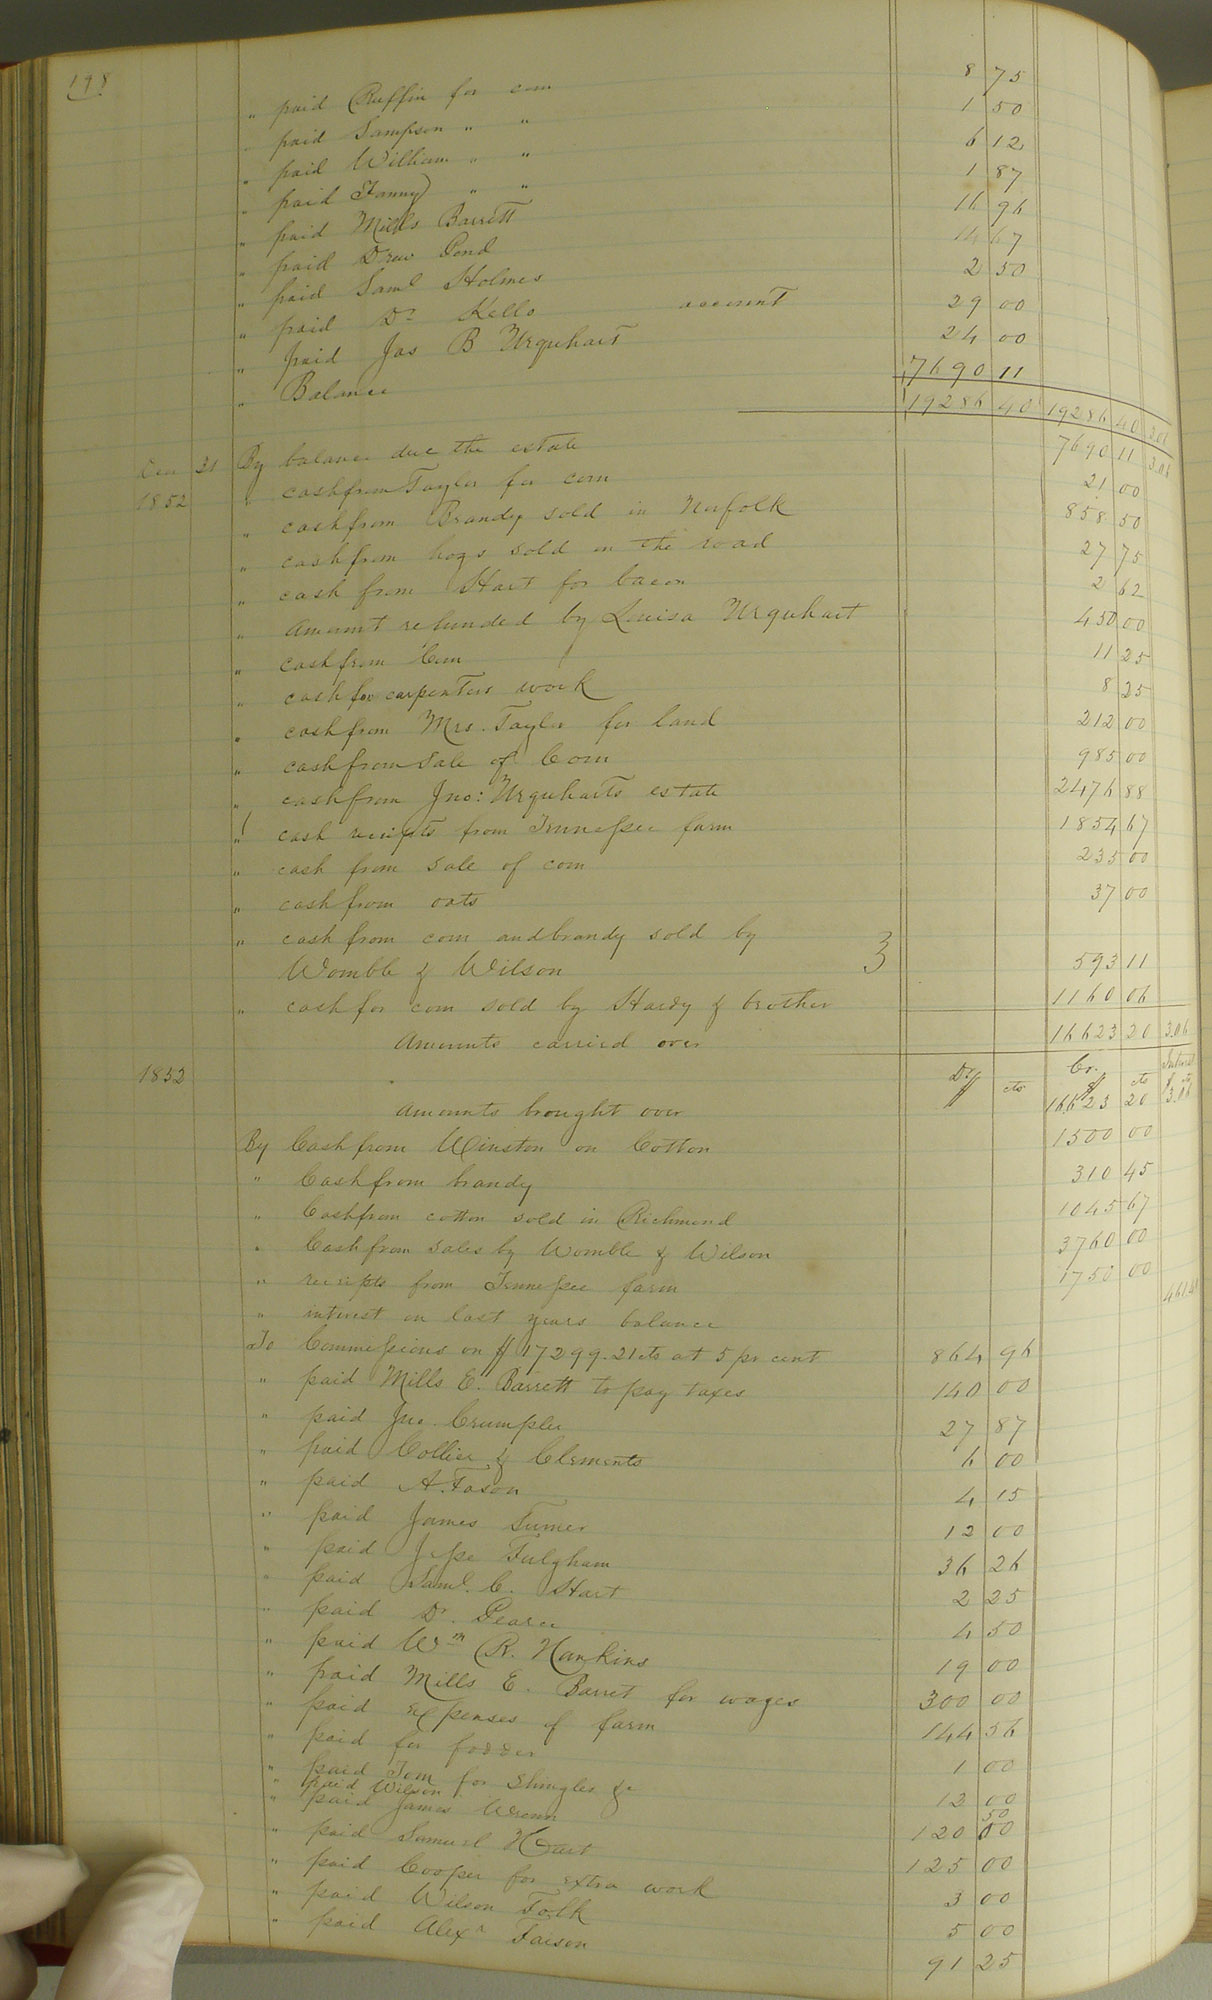 198
" paid Ruffin for corn 8 75
" paid Sampson " " 1 50
" paid William " " 6 12
" paid Fanny " " 1 87
" paid Mills Barrett 16 96
" paid Drew Pond 14 67
" paid Saml Holmes 2 50
" paid Dr Kello account 29 00
" paid Jas B Urquhart 24 00
" Balance 7690 11
19286 40 19286 40 3.06
Dec 31 By balance due the estate 7690 11 3.06
1852 " cash from Taylor for corn 21 00
" cash from Brandy sold in Norfolk 858 50
" cash from hogs sold on the road 27 75
" cash from Hart for bacon 2 62
" Amount refunded by Louisa Urquhart 450 00
" cash from Corn 11 25
" cash for carpenters work 8 25
" cash from Mrs. Tayler for land 212 00
" cash from sale of Corn 985 00
" cash from Jno: Urquharts estate 2476 88
" cash receipts from Tennessee farm 1854 67
" cash from sale of corn 235 00
" cash from oats 37 00
" cash from corn and brandy sold by
Womble & Wilson 3 593 11
" cash for corn sold by Hardy & brother 1160 06
Amounts carried over 16623 20 3.06
1852 Dr $ cts Cr. $ cts Interest $ cts
Amounts brought over 16623 20 3.06
By Cash from Winston on Cotton 1500 00
" Cash from brandy 310 45
" Cash from cotton sold in Richmond 1045 67
" Cash from sales by Womble & Wilson 3760 00
" receipts from Tennessee farm 1750 00
" interest on last years balance
To Commessions on $17299.21cts at 5 pr cent 864 96
" paid Mills E. Barrett to pay taxes 140 00
" paid Jno. Crumpler 27 87
" paid Collier & Clements 6 00
" paid A. Fason 4 15
" paid James Turner 12 00
" paid Jesse Fulgham 36 26
" paid Saml. C. Hart 2 25
" paid Dr. Pearce 4 50
" paid Wm R. Hankins 19 00
" paid Mills E. Barret for wages 300 00
" paid expenses of farm 144 56
" paid for fodder 1 00
" paid Tom for shingles &c 12 00
" paid Wilson 50
" paid James Wrenn 120 00
" paid Samuel Hart 125 00
" paid Cooper for extra work 3 00
" paid Wilson Folk 5 00
" paid Alexr Faison 91 25